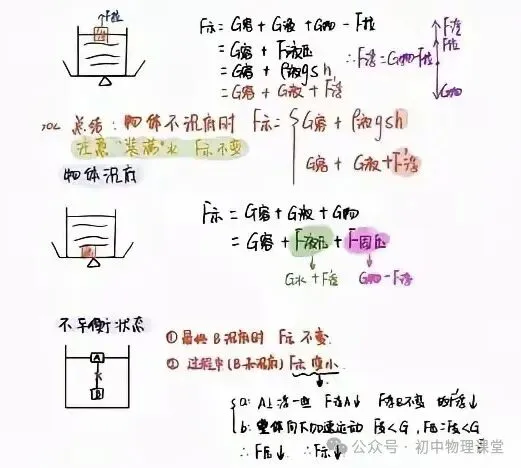 ↑F拉
F示 = G容 + G液 + G物 - F拉
= G容 + F液压 ∴F浮=G物-F拉
= G容 + ρ液gsh
= G容 + G液 + F浮
F浮
F拉
G物
总结: 物体不沉底时 F示 = { G容 + ρ液gsh
注意"装满"水 F示不变
G容 + G液 + F浮
物体沉底
F示 = G容 + G液 + G物
= G容 + F液压 + F固压
G水 + F浮 G物 - F浮
不平衡状态
① 最终B沉底时 F示 不变.
② 过程中(B未沉底) F示 变小
A
B
a: A上浮一些 F浮A↓ F浮B不变 F浮↓
b: 整体向下加速运动 F支<G, F压=F支<G
∴F压↓ ∴F示↓
公众号·初中物理课堂